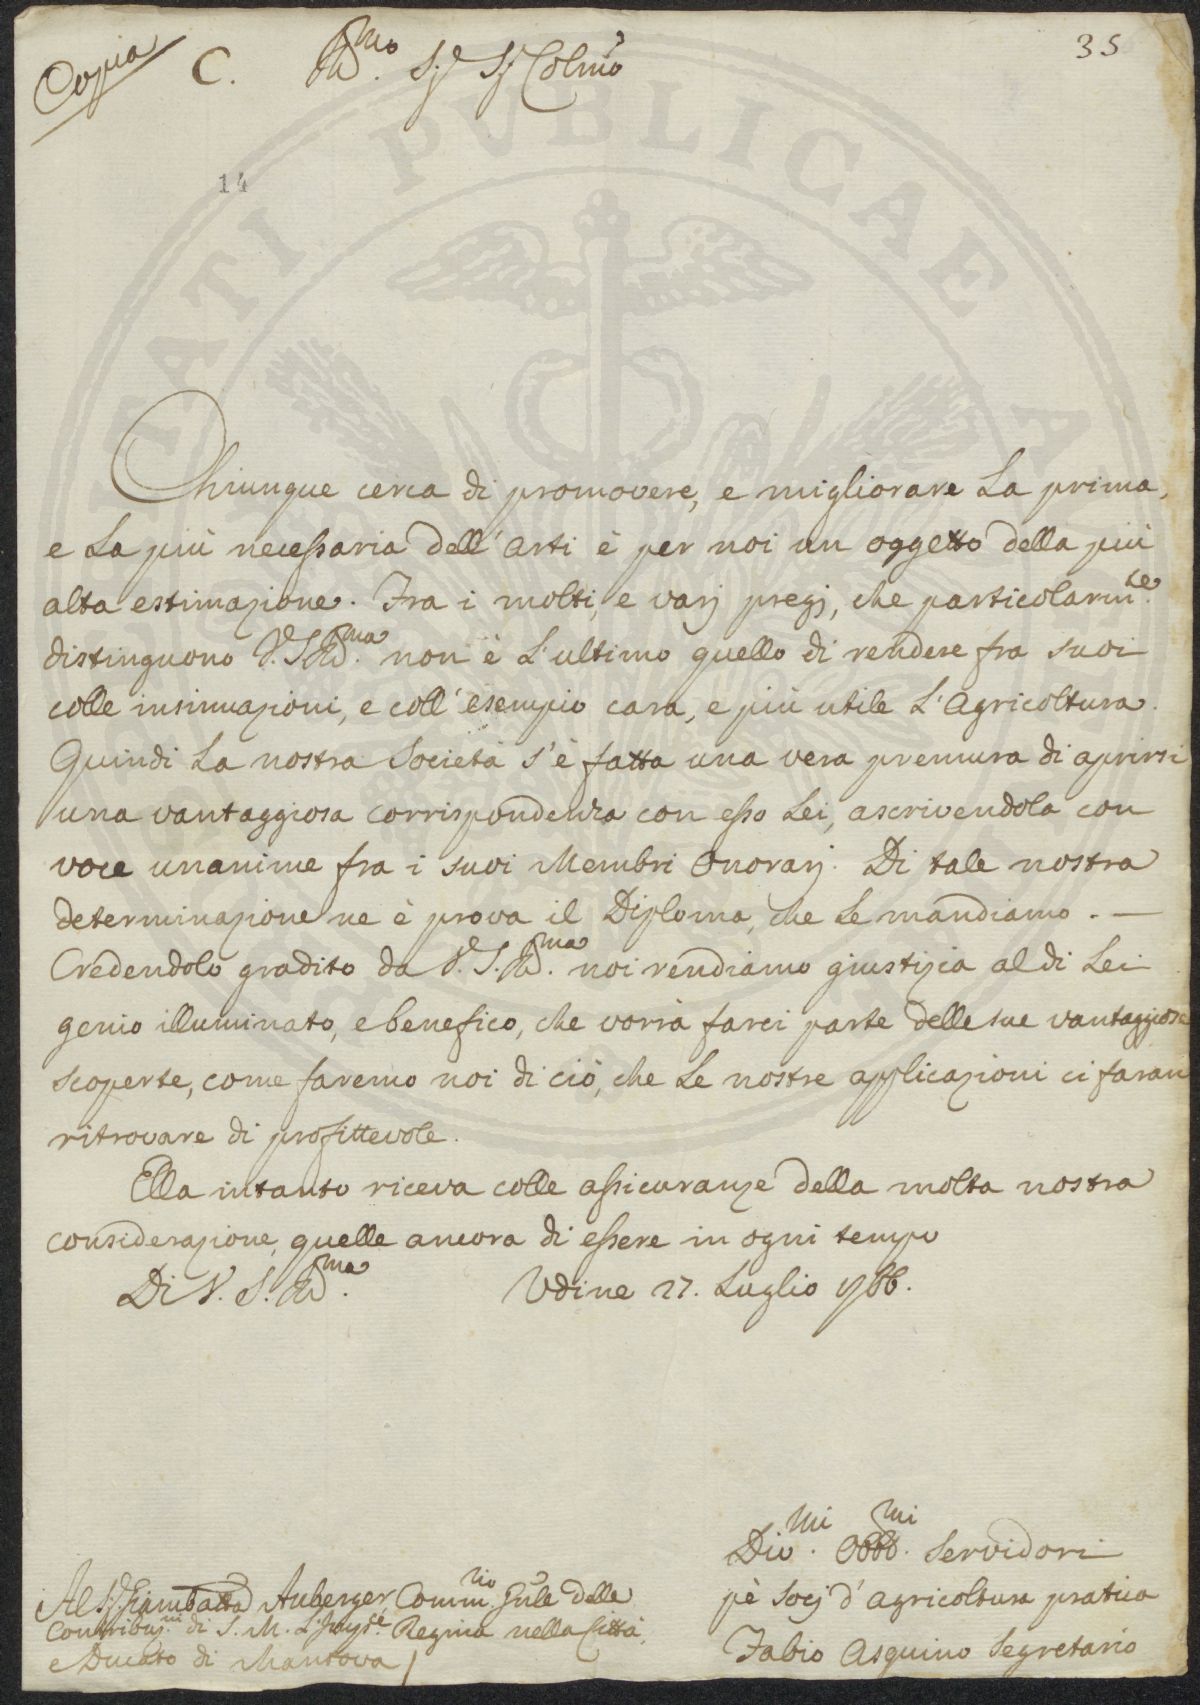 Copia C. Illmo. Sigr Sigr Colmo 35
14
Chiunque cerca di promovere, e migliorare la prima,
e la più necessaria dell'arti è per noi un oggetto della più
alta estimazione. Fra i molti, e varj pregj, che particolarmte.
distinguono V. S. Illma. non è l'ultimo quello di rendere fra suoi
colle insinuazioni, e coll'esempio cara, e più utile l'Agricoltura.
Quindi la nostra Società s'è fatta una vera premura di aprirsi
una vantaggiosa corrispondenza con esso Lei, ascrivendola con
voce unanime fra i suoi Membri Onorarj. Di tale nostra
determinazione ne è prova il Diploma, che Le mandiamo. —
Credendolo gradito da V. S. Illma. noi rendiamo giustizia al di Lei
genio illuminato, e benefico, che vorrà farci parte delle sue vantaggiose
scoperte, come faremo noi di ciò, che le nostre applicazioni ci faran
ritrovare di profittevole.
Ella intanto riceva colle assicuranze della molta nostra
considerazione, quelle ancora di essere in ogni tempo
Di V. S. Illma. Udine 27. Luglio 1766.
Divmi. Obbmi. Servidori
pè Socj d'agricoltura pratica
Fabio Asquino Segretario
Al Sigr Giambatta Auberger Commrio Gnle delle
Contribuzni di S. M. l'Impce Regina nella Città,
e Ducato di Mantova
PVBLICAE